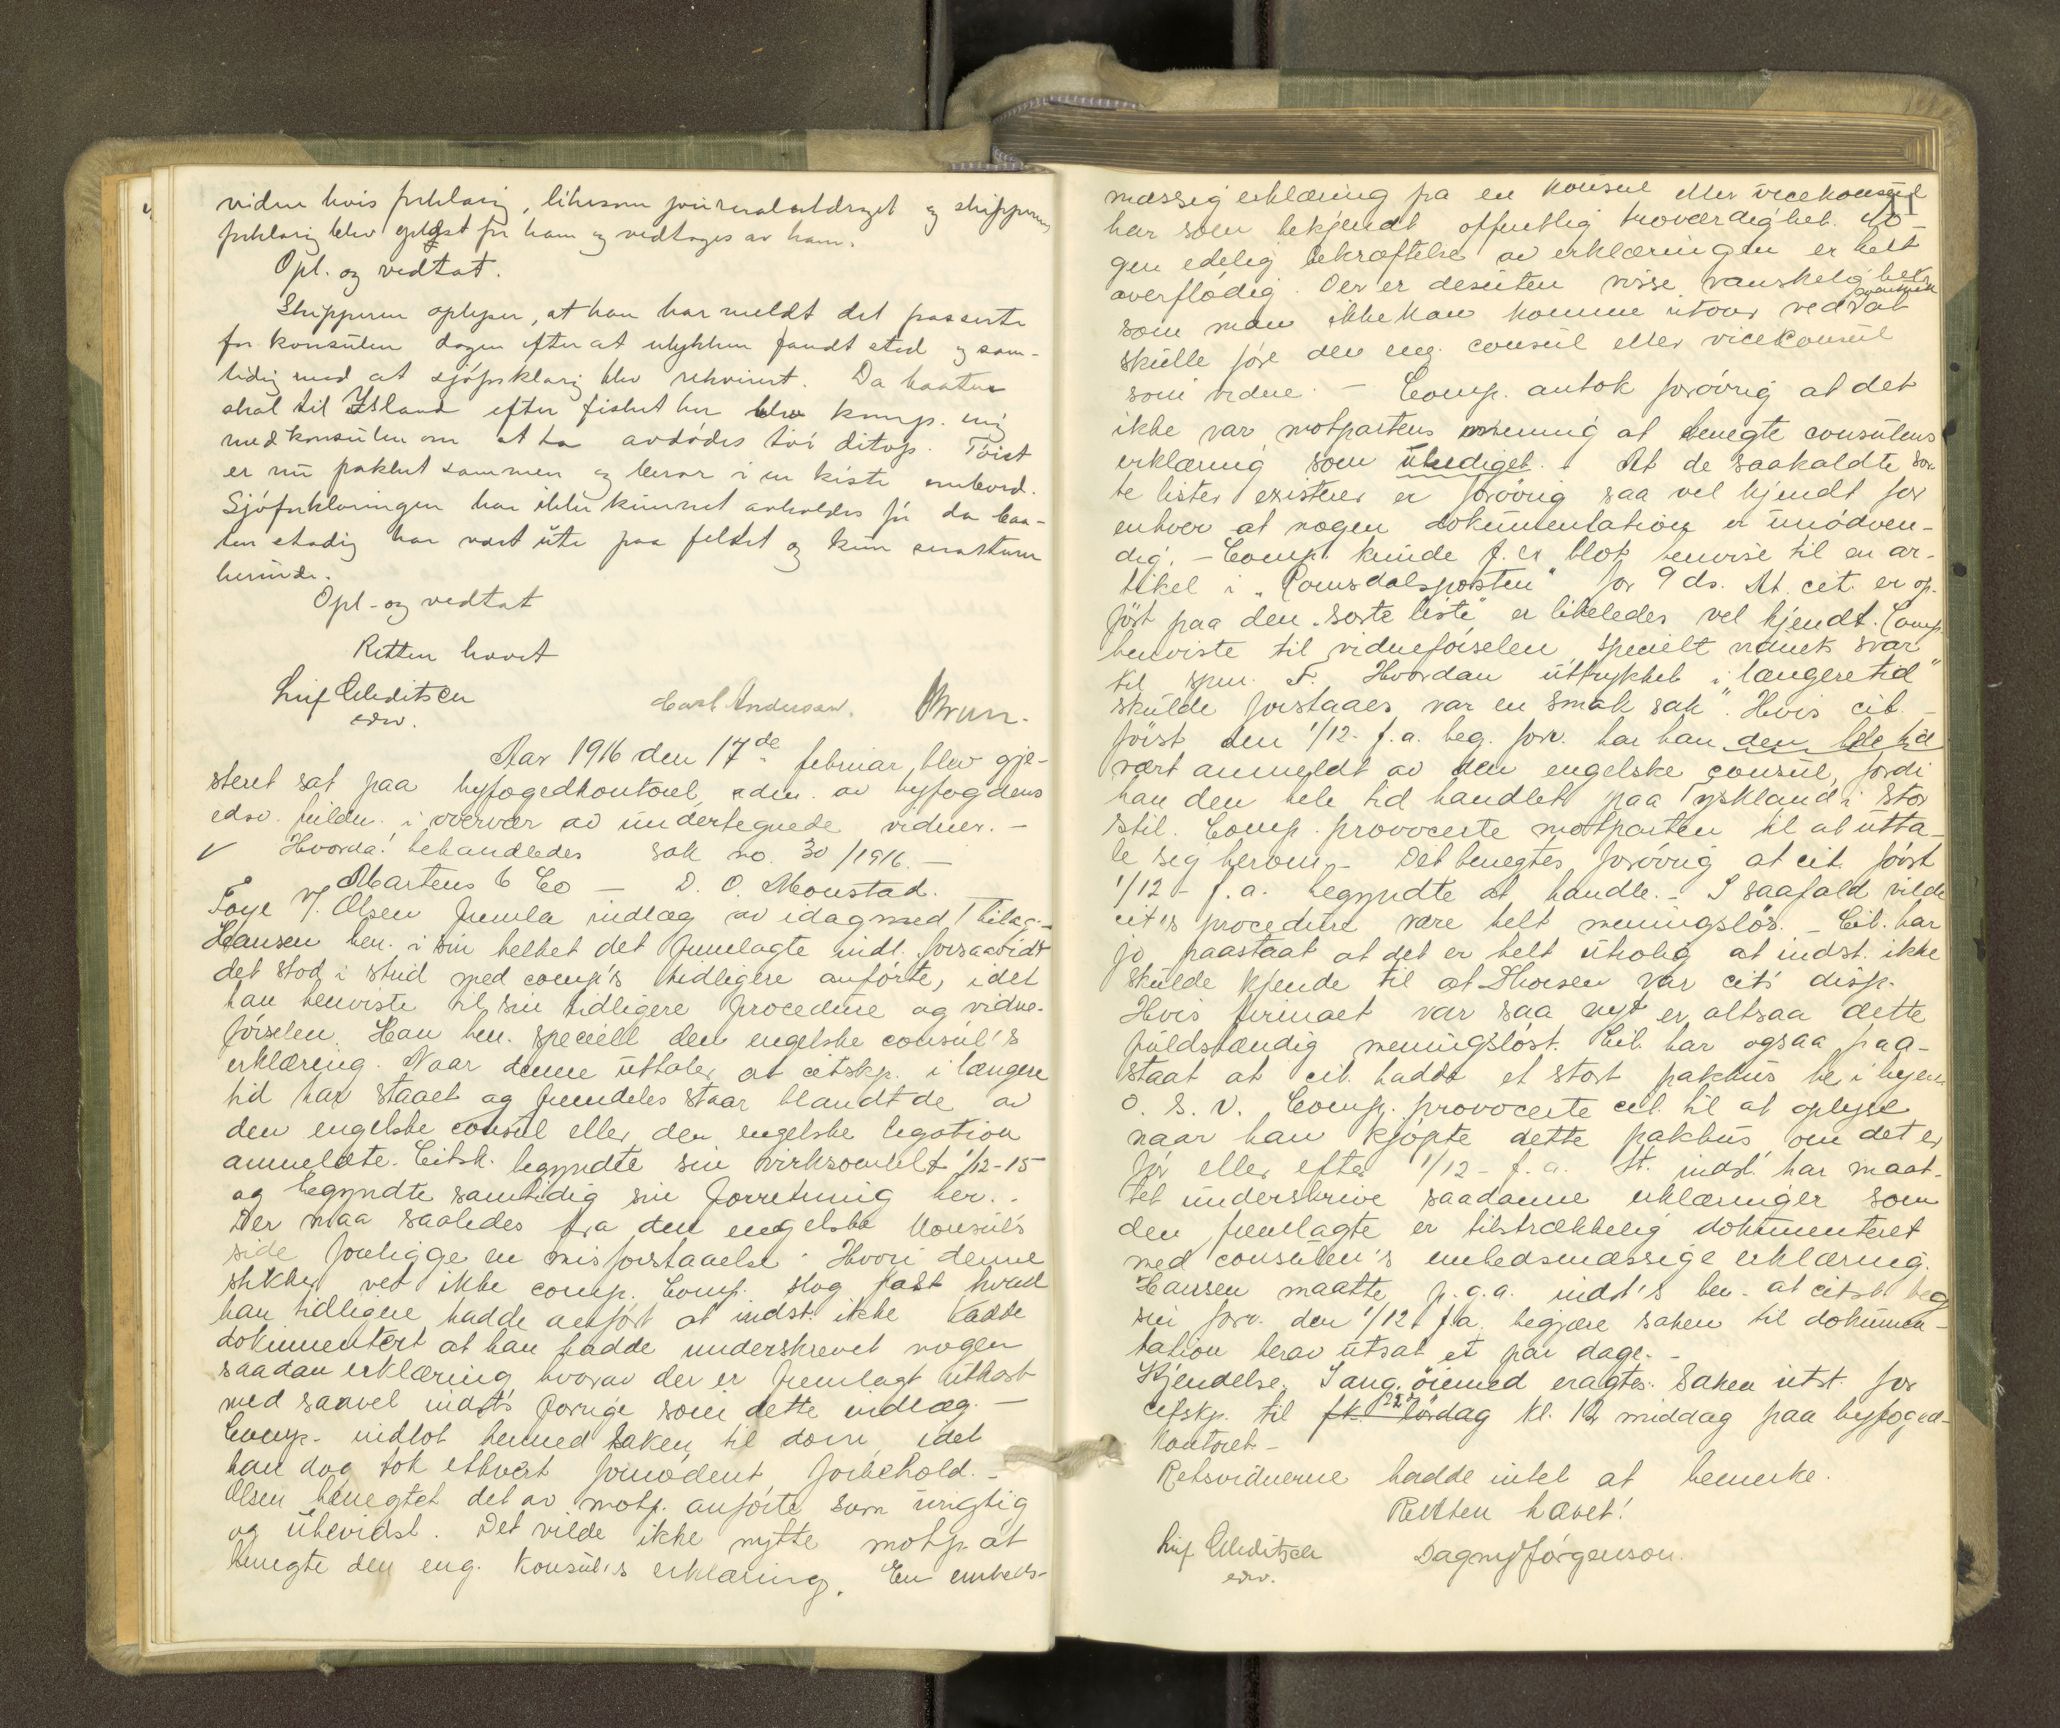 viden hvis forklaring, likesom journalutdraget og skipperens
forklaring blev oplæst for ham og vedtoges av ham.
Opl. og vedtat.
Skipperen oplyser, at han har meldt det passerte
for konsulen dagen efter at ulykken fandt sted og sam-
tidig med at sjöforklaring blev rekvirert. Da baaten
skal til Island efter fisket her blev komp. enig
med konsulen om at ta avdödes töi ditop. Töiet
er nu pakket sammen og beror i en kiste ombord.
Sjöforklaringen har ikke kunnet avholdes för da baa-
ten stadig har vært ute paa feltet og kun snartur
herinde.
Opl- og vedtat
Retten hævet
Leif Melditsen Carl Anderssen. Brun.
edsv.
Aar 1916 den 17de februar blev gje-
steret sat paa byfogedkontoret, adm. av byfogdens
edsv. fuldm. i overvær av undertegnede vidner. -
✓ Hvorda! behandledes sak no. 30/1916. -
Martens & Co - D. O. Monstad.
Foye f. Olsen fremla indlæg av idag med 1 bilag. -
Hansen ben. i sin helhet det fremlagte indl. forsaavidt
det stod i strid med comp's tidligere anförte, idet
han henviste til sin tidligere procedure og vidne-
förselen. Han ben. specielt den engelske consul's
erklæring. Naar denne uttaler at citskp. i længere
tid har staaet og fremdeles staar blandt de av
den engelske consul eller den engelske legation
anmeldte. Citsk. begyndte sin virksomhet 1/12-15
og begyndte samtidig sin forretning her. .
Der maa saaledes fra den engelske konsuls
side foreligge en misforstaaelse. Hvori denne
stikker vet ikke comp. Comp. slog fast hvad
han tidligere hadde anfört at indst. ikke hadde
dokumentert at han hadde underskrevet nogen
saadan erklæring hvorav der er fremlagt utkast
med saavel indst's forrige som dette indlæg. -
Comp. indlot hermed saken til dom, idet
han dog tok ethvert fornödent forbehold. -
Olsen benegtet det av motp. anförte som urigtig
og ubevist. Det vilde ikke nytte motp. at
benegte den eng. konsul's erklæring. En embeds-
11
mæssig erklæring fra en konsul eller vicekonsul
har som bekjendt offentlig troværdighet. No-
gen edelig bekræftelse av erklæringen er helt
overflödig. Der er desuten visse vanskelig heter
som man ikke kan komme utover ved at
skulle före den eng. consul eller vicekonsul
som vidne. - Comp. antok forövrig at det
ikke var motpartens mening at benegte consulens
erklæring som ubediget. At de saakaldte sor-
te lister existerer er forövrig saa vel kjendt for
enhver at nogen dokumentation er unödven-
dig. - Comp. kunde f. ex blot henvise til en ar-
tikel i "Romsdalsposten" for 9 ds. At cit. er op-
fört paa den "sorte liste" er likeledes vel kjendt. Comp.
henviste til vidneförselen specielt vidnets svar
til spm. F. Hvordan uttrykket "i længere tid"
skulde forstaaes var en smak sak". Hvis cit. -
först den 1/12- f.a. beg. forr. har han den hele tid
vært anmeldt av den engelske consul, fordi
han den hele tid handlet paa Tyskland i stor
stil. Comp. provocerte motparten til at utta-
le seg herom. - Det benegtes forövrig at cit. först
1/12 - f.a. begyndte at handle. - I saafald vilde
cit's procedure være helt meningslös. - Cit. har
jo paastaat at det er helt utrolig at indst. ikke
skulde kjende til at Thorsen var cit's disp.
Hvis firmaet var saa nyt er altsaa dette
fuldstændig meningslöst. Cit. har ogsaa paa-
staat at cit. hadde et stort pakhus her i byen
o. s. v. Comp. provocerte cit. til at oplyse
naar han kjöpte dette pakhus, om det er
för eller efter 1/12 - f.a. At indst. har maat-
tet underskrive saadanne erklæringer som
den fremlagte er tilstrækkelig dokumenteret
med consulen's embedsmæssige erklæring.
Hansen maatte p.g.a. indst's ben. at citsk. beg
sin forr. den 1/12 f.a. begjære saken til dokumen-
tation herav utsat et par dage. -
Kjendelse. I ang. öiemed eragtes: Saken utst. for
citskp. til lördag kl. 12 middag paa byfoged-
kontoret -
Retsvidnerne hadde intet at bemerke.
Retten hævet!
Leif Melditsen Dagny Jörgenson.
edsv.